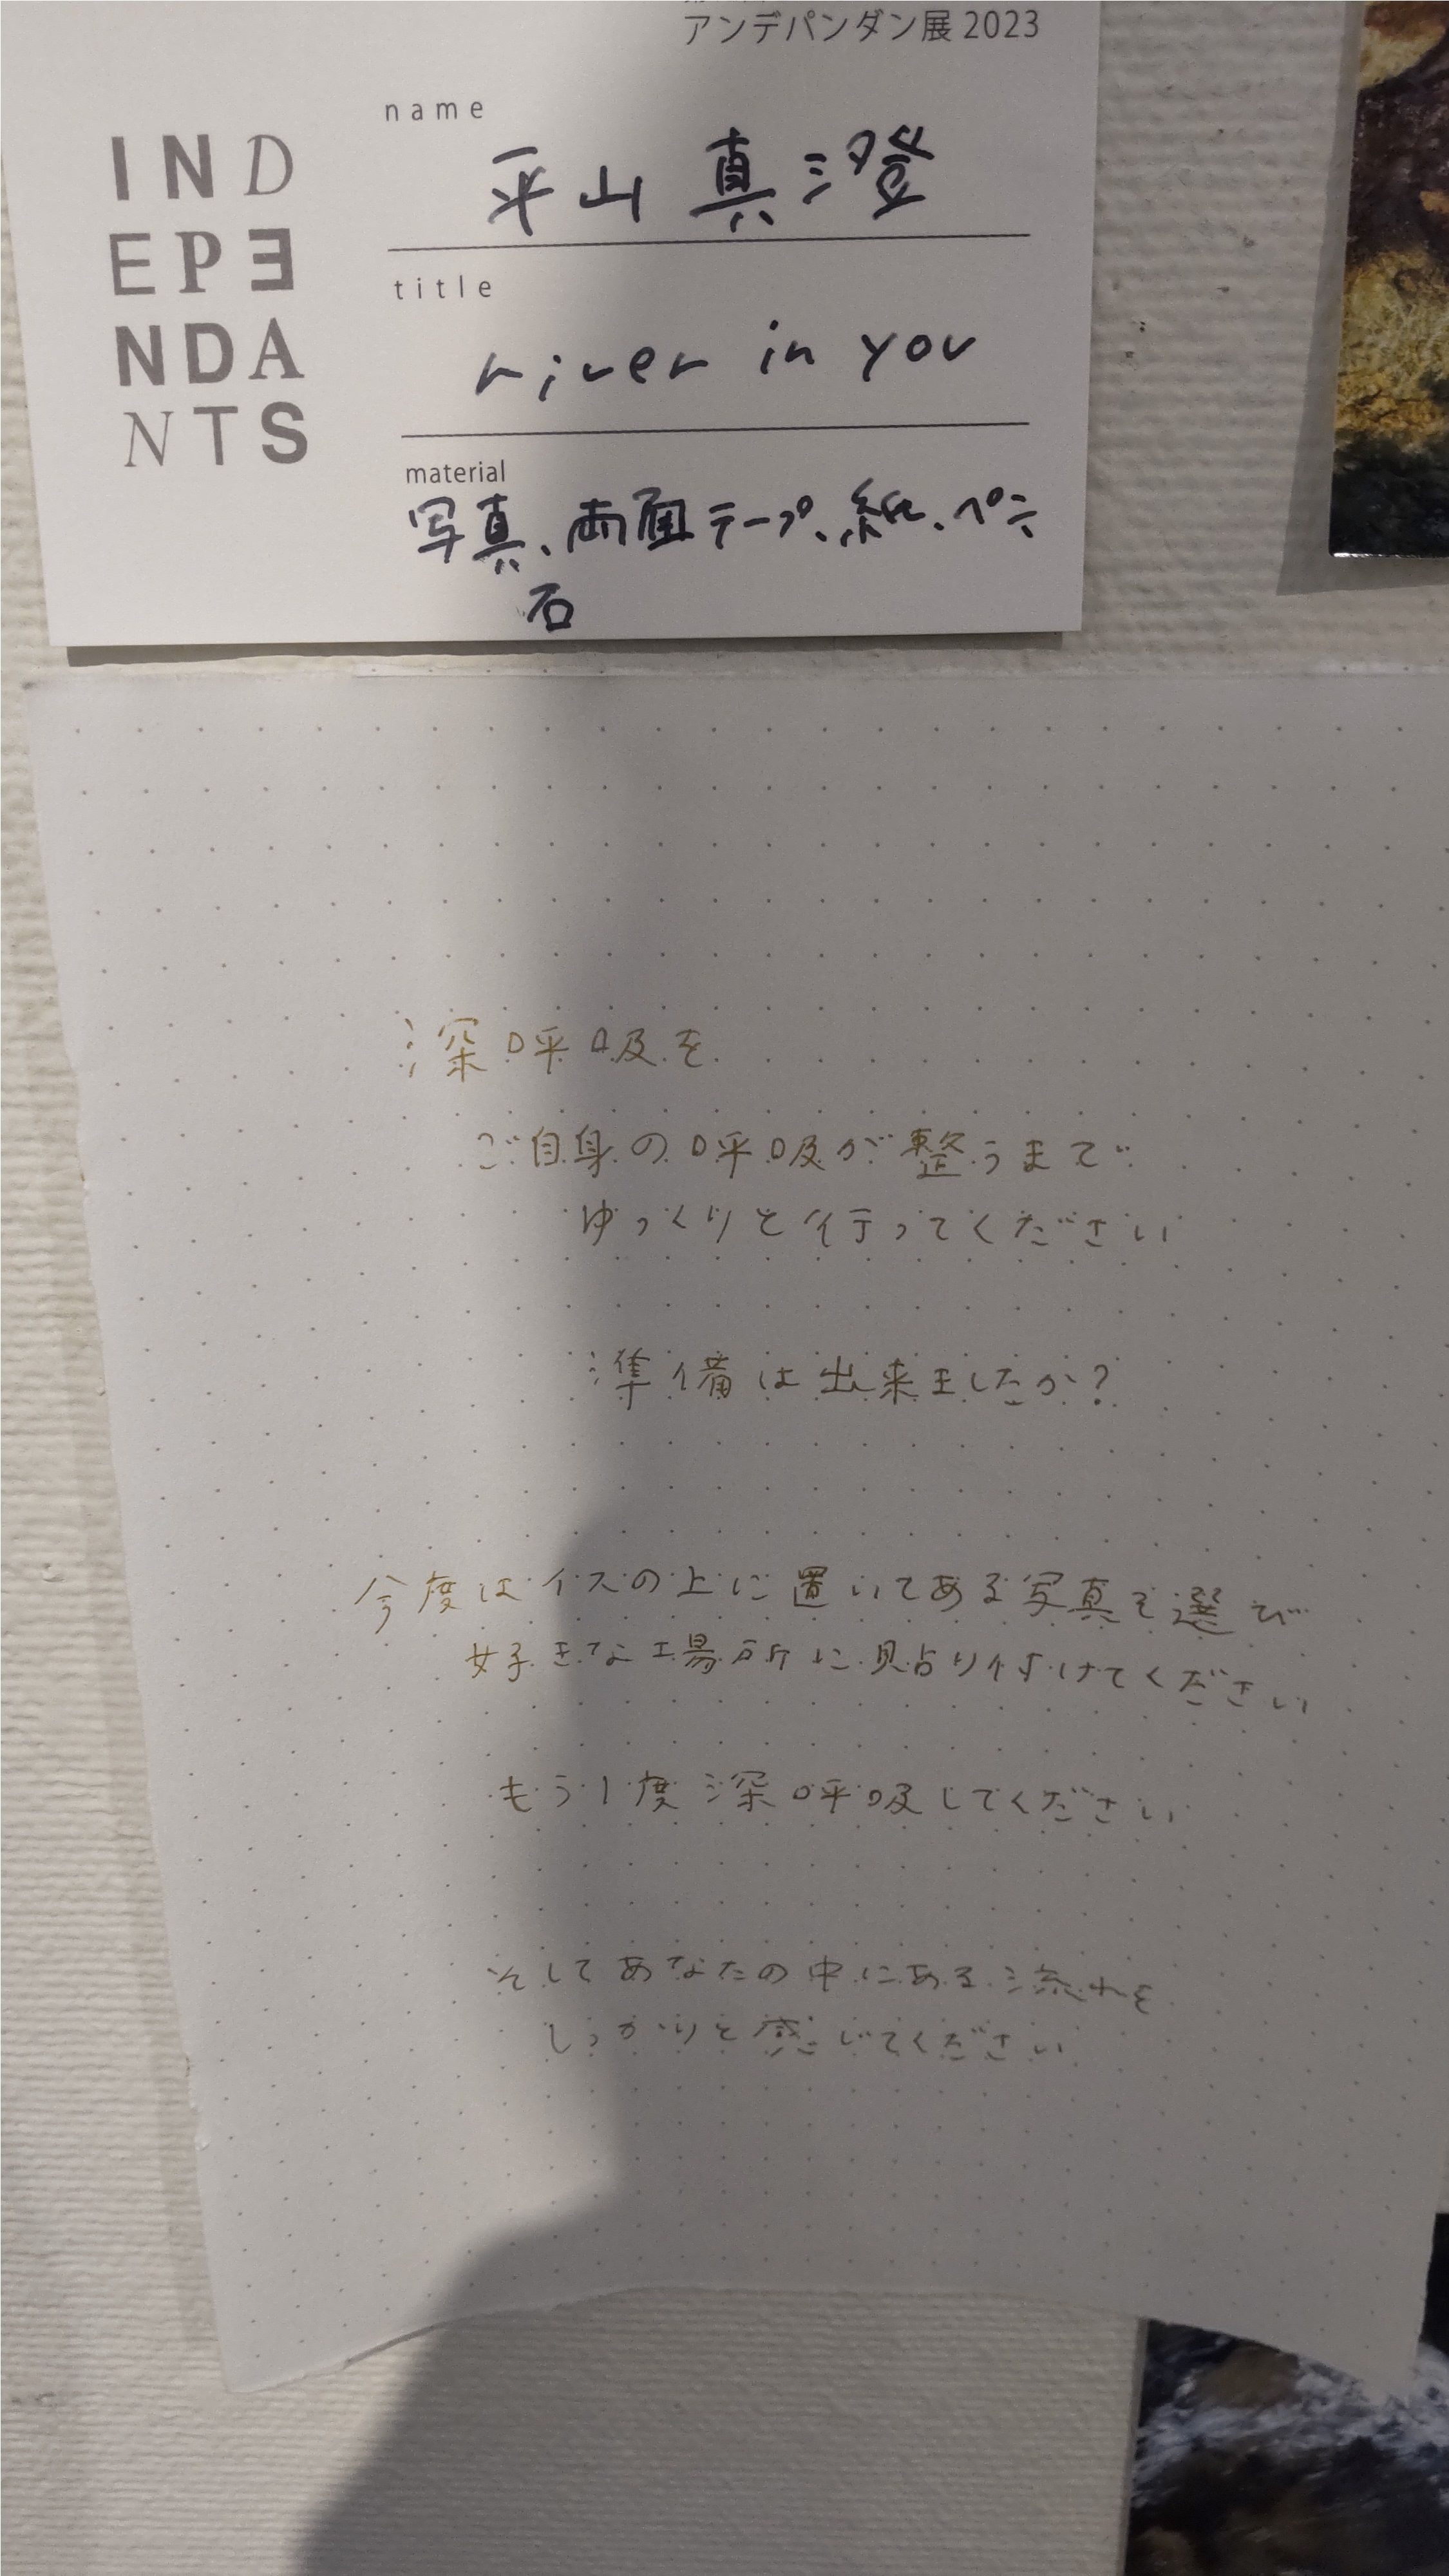 アンデパンダン展 2023
IND
EPE
NDA
NTS
name
平山 真澄
title
river in you
material
写真、両面テープ、紙、ペン
石
深呼吸を
ご自身の呼吸が整うまで
ゆっくりと行ってください
準備は出来ましたか?
今度はイスの上に置いてある写真を選び
好きな場所に貼り付けてください
もう1度深呼吸してください
そしてあなたの中にある流れを
しっかりと感じてください